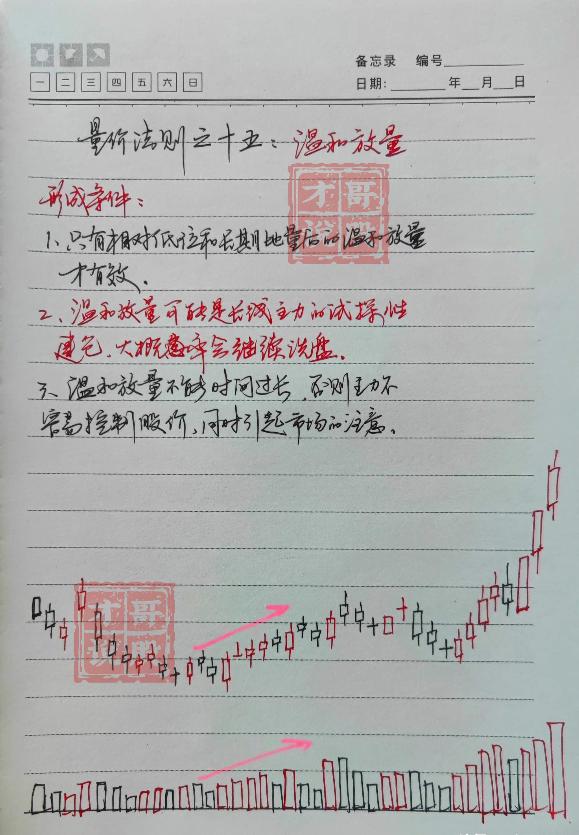 备忘录 编号
一 二 三 四 五 六 日
日期: 年 月 日
量价法则之十五：温和放量
形成条件：
1、只有相对低位和长期地量后的温和放量
才有效.
2、温和放量可能是长线主力的试探性
建仓，大概意味会继续洗盘.
3、温和放量不能时间过长，否则主力不
容易控制股价，同时引起市场的注意.
才哥
说股
才哥
说股